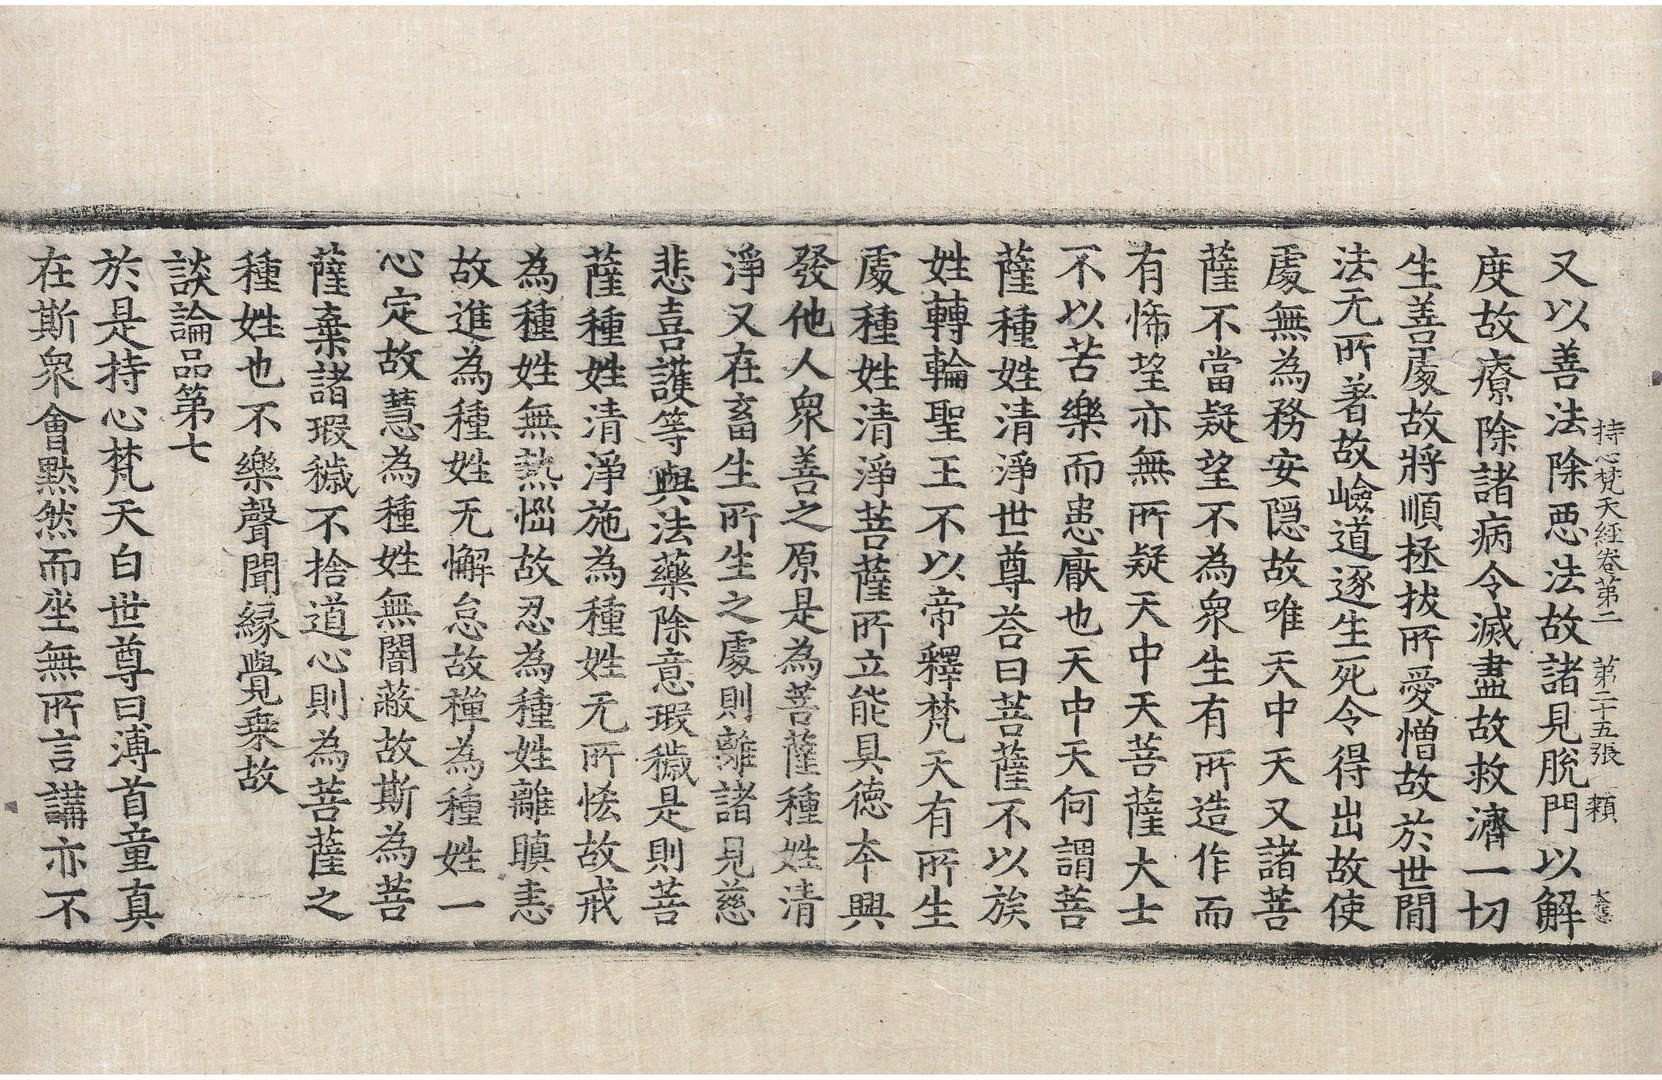 持心梵天經卷第二　第二十五張　賴
又以善法除恶法故諸見脫門以解
度故療除諸病令滅盡故救濟一切
生善處故將順拯拔所愛憎故於世間
法无所著故嶮道逐生死令得出故使
處無為務安隱故唯天中天又諸菩
薩不當疑望不為衆生有所造作而
有悕望亦無所疑天中天菩薩大士
不以苦樂而患厭也天中天何謂菩
薩種姓清淨世尊荅曰菩薩不以族
姓轉輪聖王不以帝釋梵天有所生
處種姓清淨菩薩所立能具德本興
發他人衆善之原是為菩薩種姓清
淨又在畜生所生之處則離諸見慈
悲喜護等與法藥除意瑕穢是則菩
薩種姓清淨施為種姓无所恡故戒
為種姓無熱惱故忍為種姓離瞋恚
故進為種姓无懈怠故禪為種姓一
心定故慧為種姓無闇蔽故斯為菩
薩棄諸瑕穢不捨道心則為菩薩之
種姓也不樂聲聞緣覺乗故
談論品第七
於是持心梵天白世尊曰溥首童真
在斯衆會黙然而坐無所言講亦不